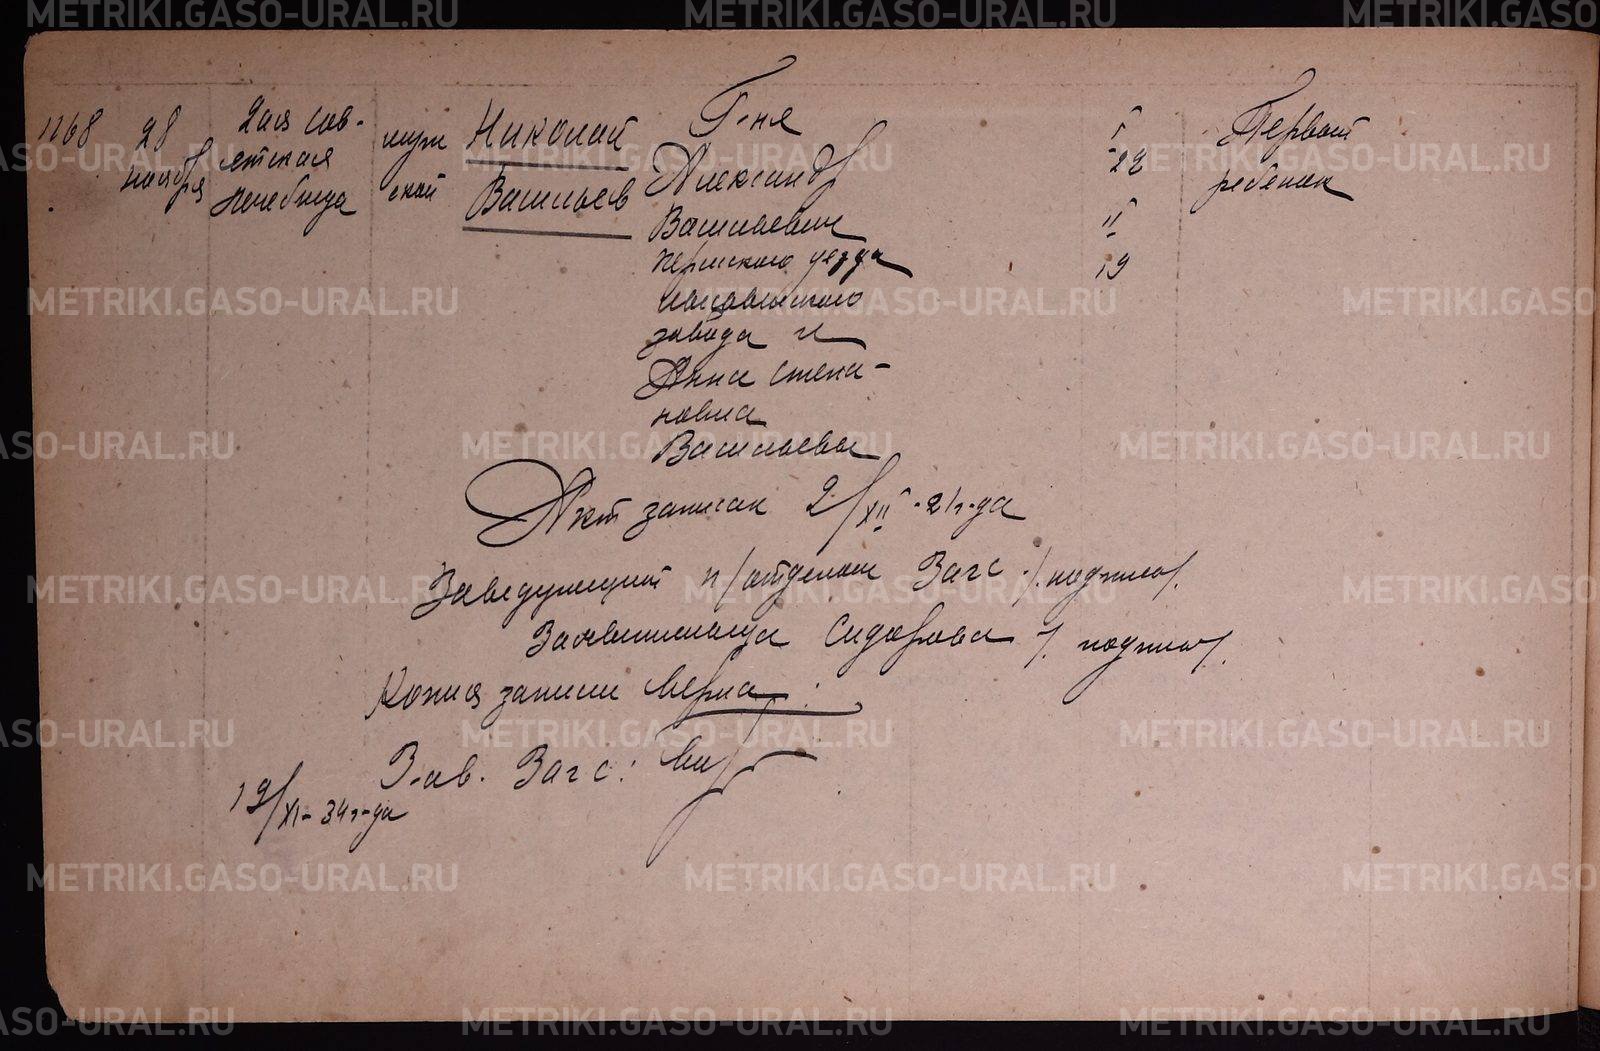 1168 28 ноября 2ая советская лечебница мужской Николай Васильев
Г-не
Александр
Васильевич
Пермского уезда
завода и
Анна Степа-
новна
Васильевы
I
22
II
19
Первый
ребенок
Акт записан 2/XII-21 г-да
Заведующий п/отделом Загс /. подпись/.
Заявительница Сидорова /. подпись/.
Копия записи верна:
Зав. Загс:
19/XI-34 г-да
METRIKI.GASO-URAL.RU